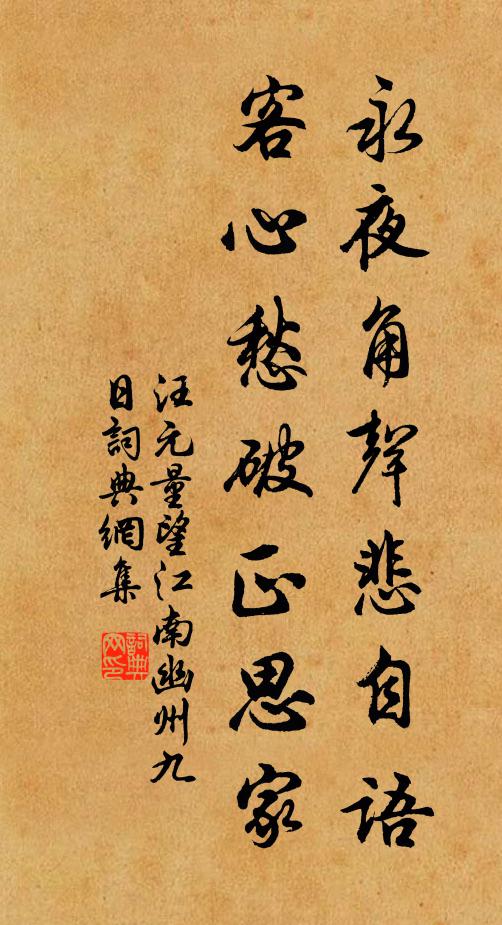 永夜角聲悲自語
客心愁破正思家
汪元量望江南幽州九
日詞典網集
詞典网印